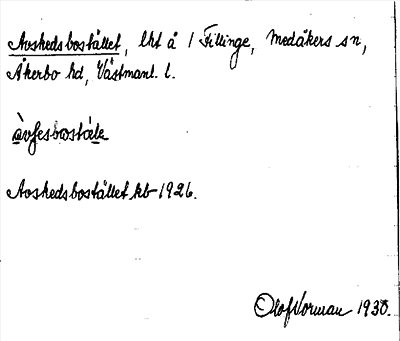 Avskedsbostället, lht å 1 Fillinge, Medåkers sn,
Åkerbo hd, Västmanl. l.
Avskedsbostället kb 1926.
Olof Norman 1930.